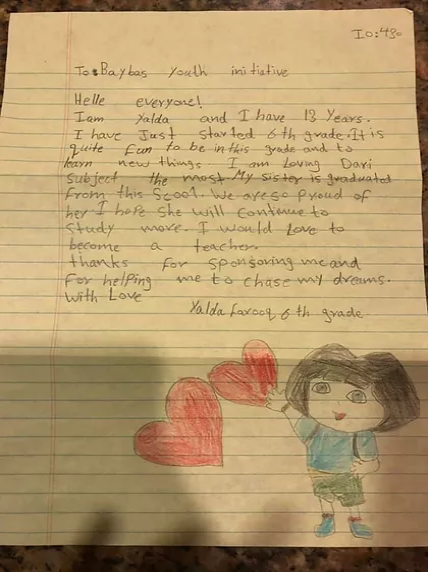 IO:480
To: Baybas Youth initiative
Helle everyone!
I am Yalda and I have 13 Years.
I have Just started 6th grade. It is
quite fun to be in this grade and to
learn new things I am Loving Dari
Subject the most. My sister is graduated
from this Scool. We are so proud of
her I hope She will continue to
Study more. I would Love to
become a teacher.
thanks for sponsoring me and
for helping me to chase my dreams.
With Love
Yalda farooq 6th grade